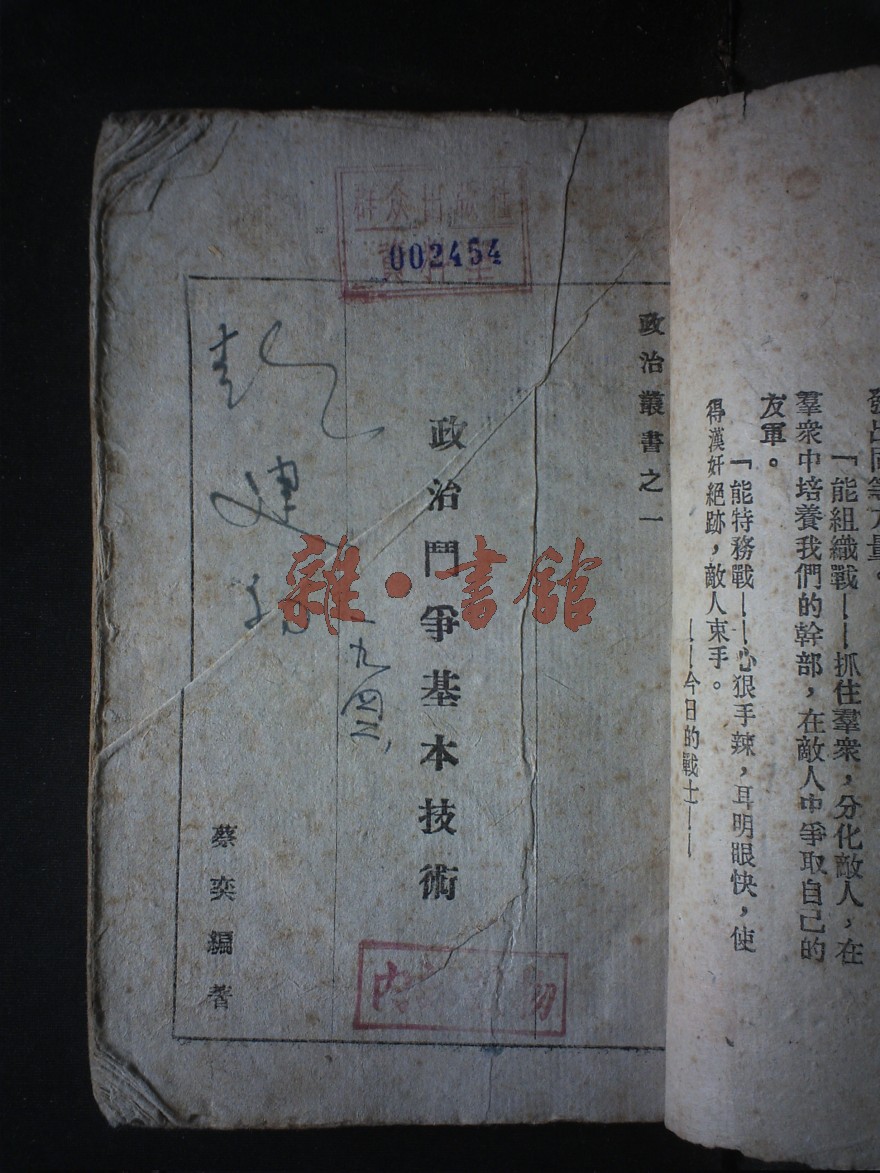 發出同等力量。
「能組織戰——抓住羣衆，分化敵人，在
羣衆中培養我們的幹部，在敵人中爭取自己的
友軍。
「能特務戰——心狠手辣，耳明眼快，使
得漢奸絕跡，敵人束手。
——今日的戰士——
政治叢書之一
群众出版社
002454
政治鬥爭基本技術
一九四二
建
蔡奕編著
内
雜·書館